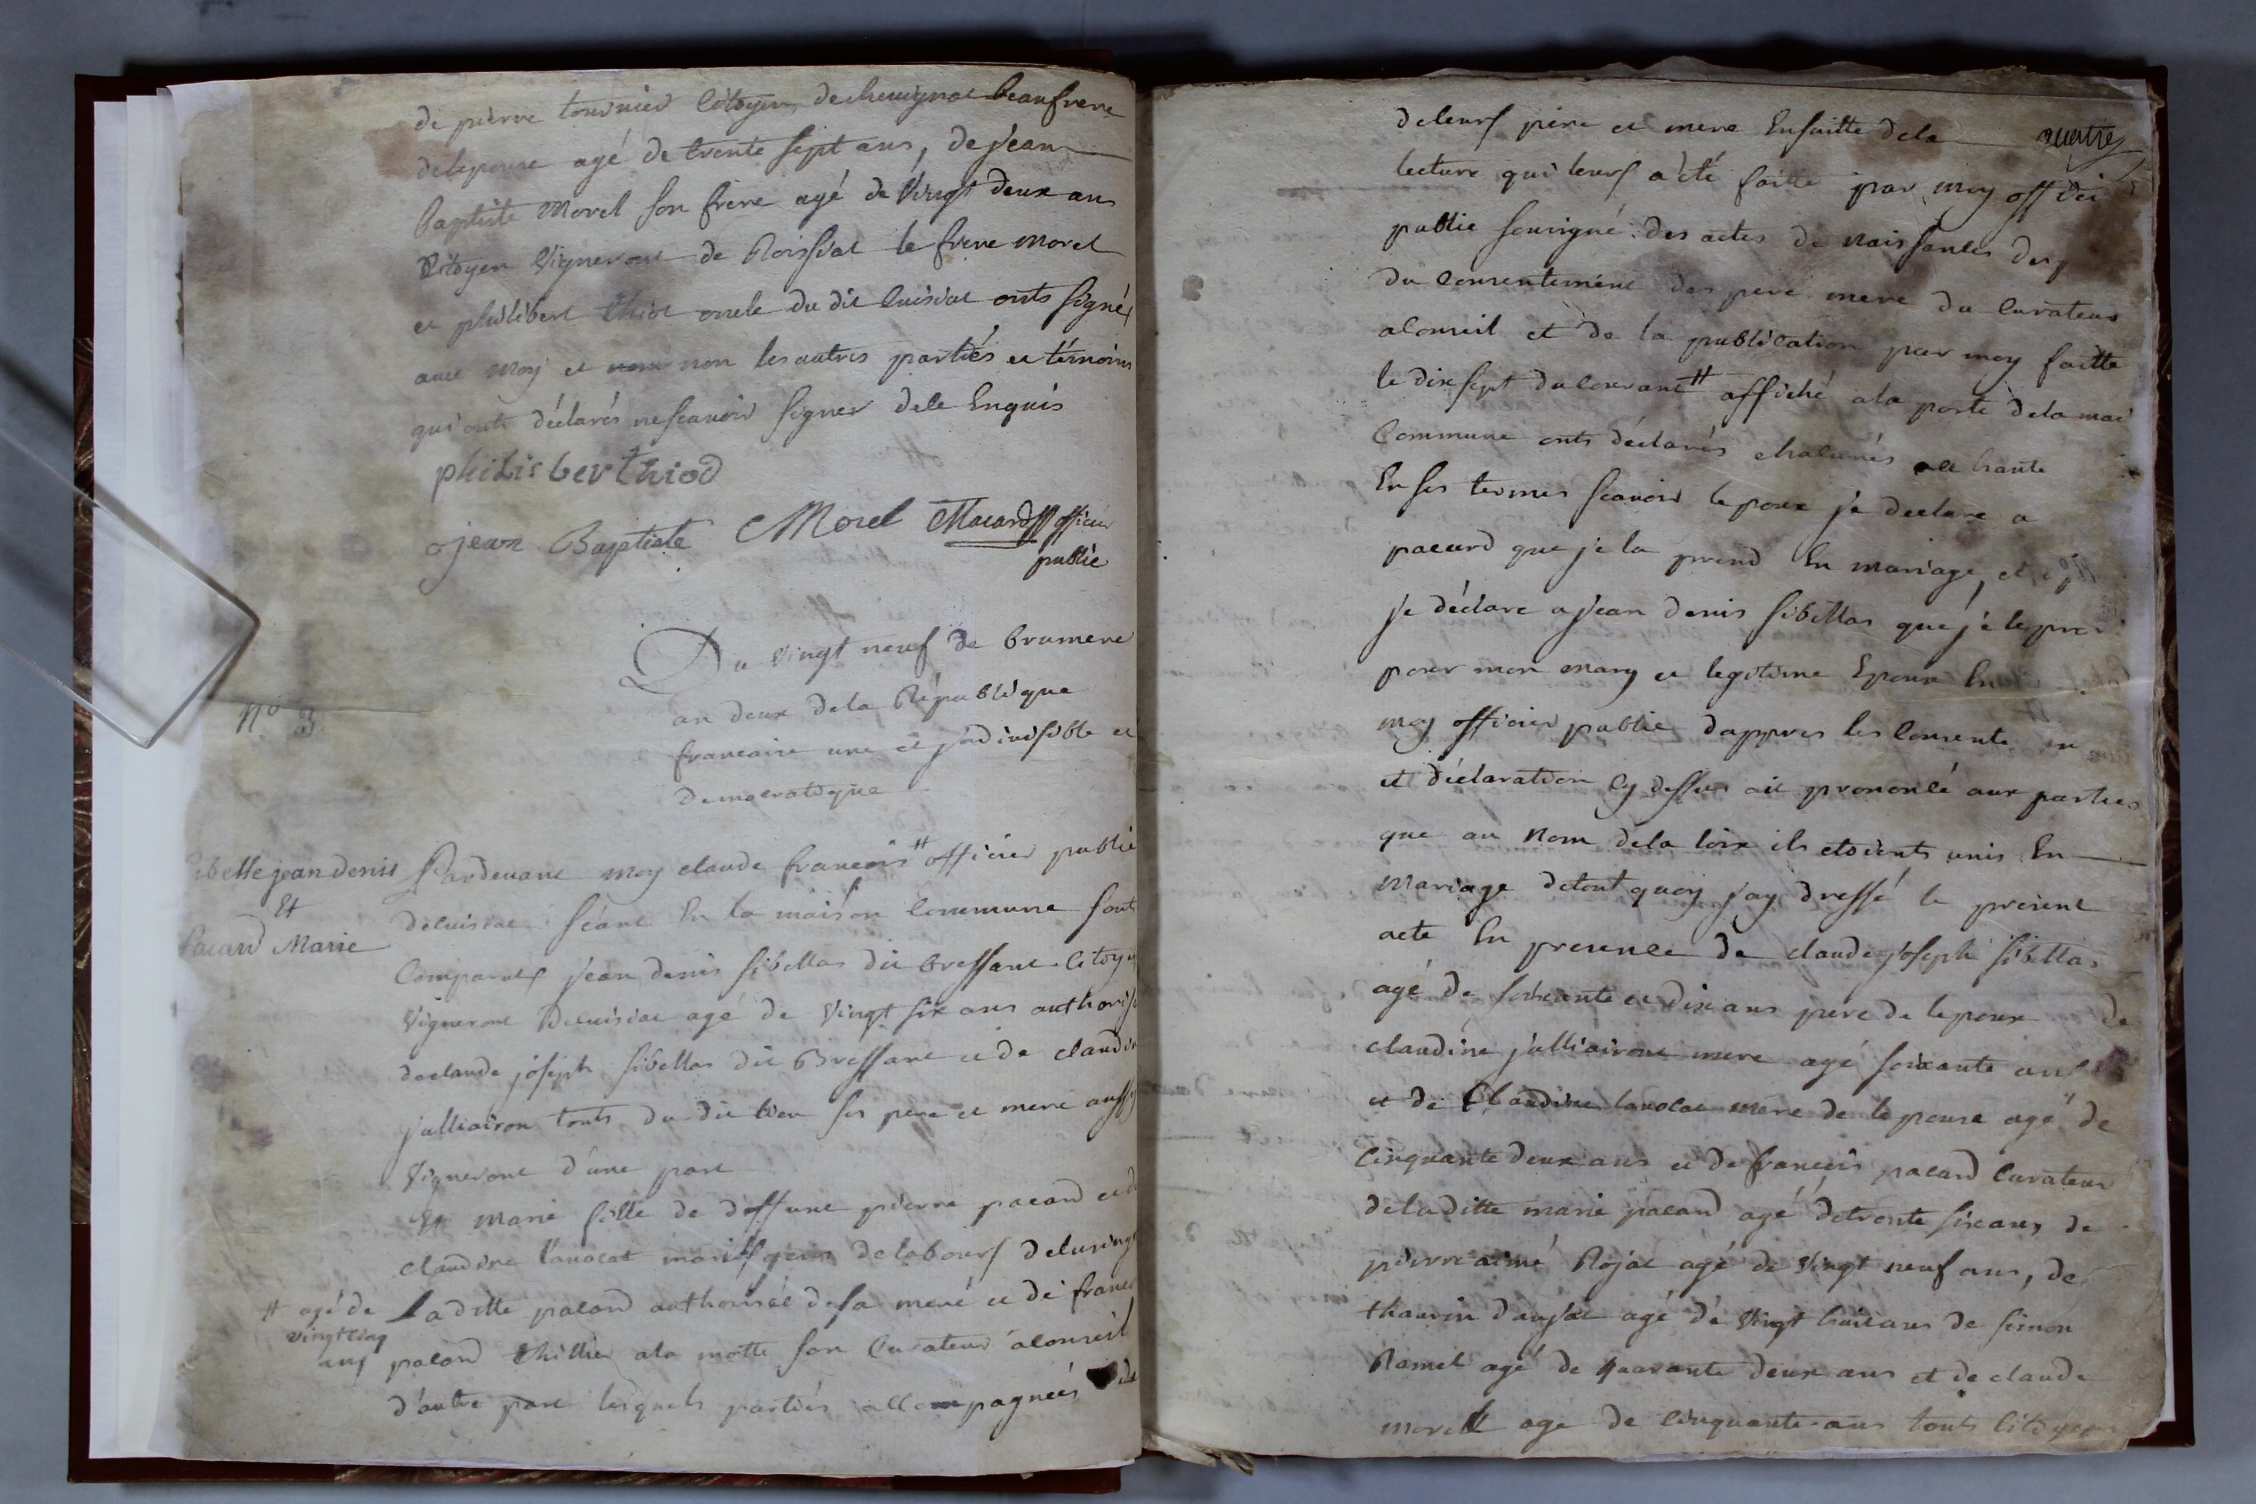 de pierre tournier Citoyen dechevignat beaufrere
delepouse agé de trente sept ans, de jean
Baptiste Morel son frere agé de Vingt deux ans
Citoyen Vigneront de Roissiat le frere morel
et philibert thiot oncle du dit Cuisiat onts signé
avec moy et non les autres partiés et témoins
qui onts déclarés nescavoir signer dele Enquis
philisberthiod
jean Baptiste Morel Macard officier
public
Du vingt neuf de brumere
an deux dela Republique
francaise une et jndivisible et
democratique
N° 3
ibette jean denis
Et
Pacard Marie
Pardevant moy claude francois # officier public
decuisiat séant En la maison Commune sont
Comparus jean denis sibellas dit bressant citoy
Vigneront Decuisiat agé de vingt six ans authoris
declaude joseph sibellas dit Bressant et de claudin
julliairon touts du dit lieu ses pere et mere aussy
Vigneront d'une part
Et Marie fille de deffunt pierre pacard et d
claudine lavocat delabours
# agé de
vingt cinq
ans
Ladille pacard authorisée desa meré et dé franc
pacard thillier ala motte son Curateur aconseil
d'autre part lesquels partiés accompagnéés
quatre
deleurs pere et mere Ensuitte dela
lecture qui leurs a été faitte par moy offici
public souvigné des actes de naissances des
du Consentement des pere mere du Curateur
aConseil et de la publication par moy faitte
le dix sept du Courant # affiché ala porte dela mai
Commune onts déclarés chacunés a haute
En ses termes scavoir lepoux je declare a
pacard que je la prend En mariage, et
je déclare a jean denis sibellas que je le pren
pour mon mary et legitime Epoux En
moy officier public dappres les Consente
et déclaration Cy dessus ait prononcé aux parties
que au Nom dela loix ils etoients unis En
Mariage detout quoy jay dressé le présent
acte En presence de claude joseph sibellas
agé de soixante et dix ans pere de lepoux de
claudine julliairont mere agé soixante ans
et de Claudine lavocat mere de lepouse agé de
Cinquante deux ans et de francois pacard Curateur
deladitte marie pacard agé detrente six ans de
pierre aimé Rojat agé de vingt neuf ans, de
thaurin daujat agé de Vingt huit ans de simon
Ramel agé de quarante deux ans et de claude
morell agé de Cinquante ans touts Citoyen